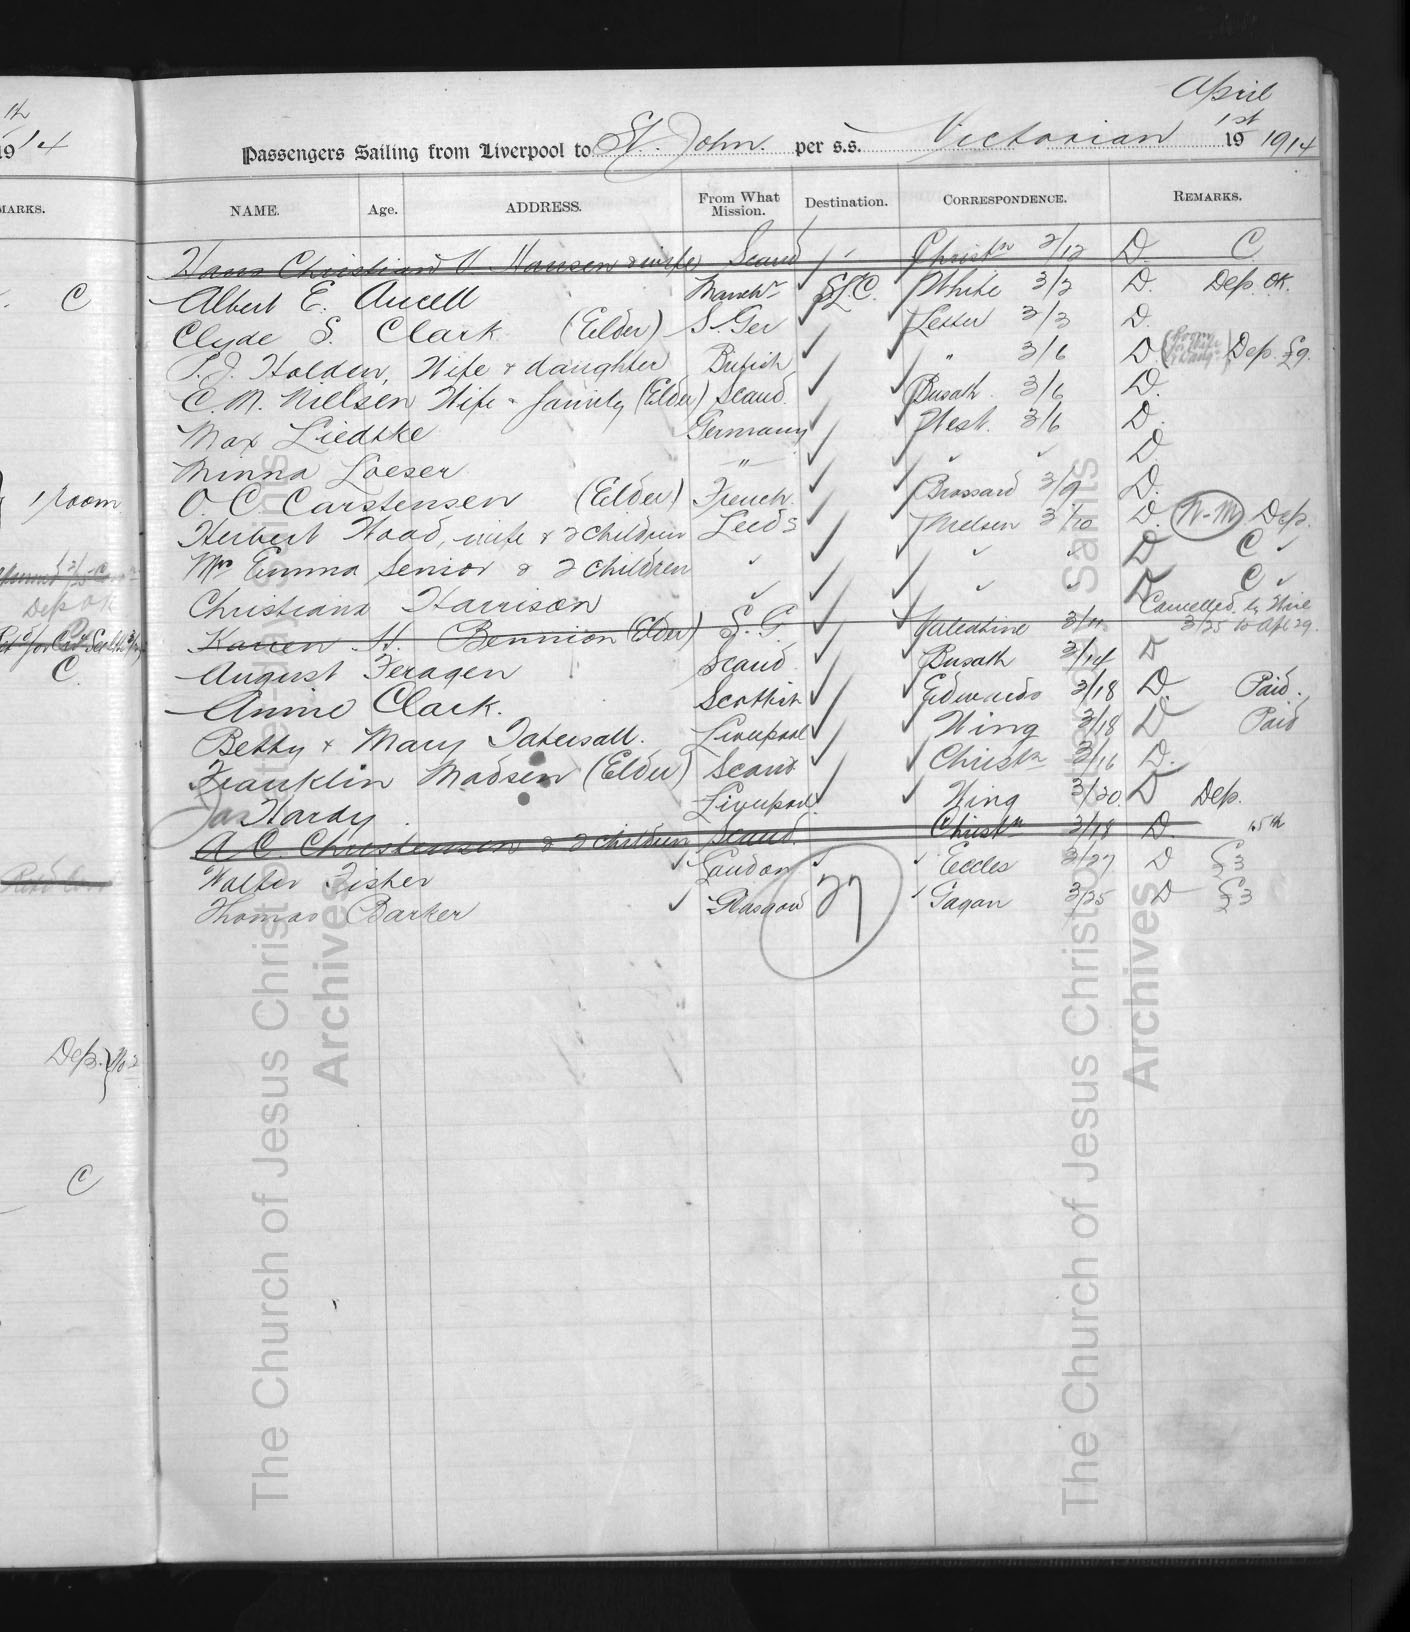 April
1st
Passengers Sailing from Liverpool to St. John. per s.s. Victorian 19 1914
NAME. Age. ADDRESS. From What Mission. Destination. CORRESPONDENCE. REMARKS.
Hans Christian V. Hansen & wife Scand Christn 2/12 D. C.
Albert E. Aucell Manchr S.L.C. White 3/2 D. Dep. OK.
Clyde S. Clark (Elder) S. Ger Letter 3/3 D.
P. J. Holden, Wife & daughter British " 3/6 D Dep. £9.
C. M. Nielsen Wife & family (Elder) Scand. Busath 3/6 D.
Max Liedtke Germany West. 3/6 D.
Minna Loeser " " " D
O. C. Carstensen (Elder) French Brossard 3/9 D.
Herbert Wood, wife & 2 children Leeds Nielsen 3/10 D. W-M Dep.
Mrs Emma Senior & 2 children " " " D C "
Christiana Harrison " " " D C "
Karen H. Bennion (Elder) S. G. Valentine 3/11 Cancelled by Wire 3/25 to Apl 29.
August Feragen Scand Busath 3/14 D
Annie Clark. Scottish Edwards 3/18 D. Paid.
Betty & Mary Tatersall. Liverpool Wing 3/18 D Paid
Franklin Madsen (Elder) Scand Christn 3/16 D.
Jas Hardy. Liverpool Wing 3/20. D Dep.
A. C. Christensen & 2 children Scand. Christn 3/18 D. 15th
Walter Fisher London Eccles 3/27 D £3
Thomas Barker Glasgow 27 Gagan 3/25 D £3
th
1914
MARKS.
C
1 room
Dep OK
C
Dep. No 2
C
The Church of Jesus Christ of Latter-day Saints
Archives
The Church of Jesus Christ of Latter-day Saints
Archives